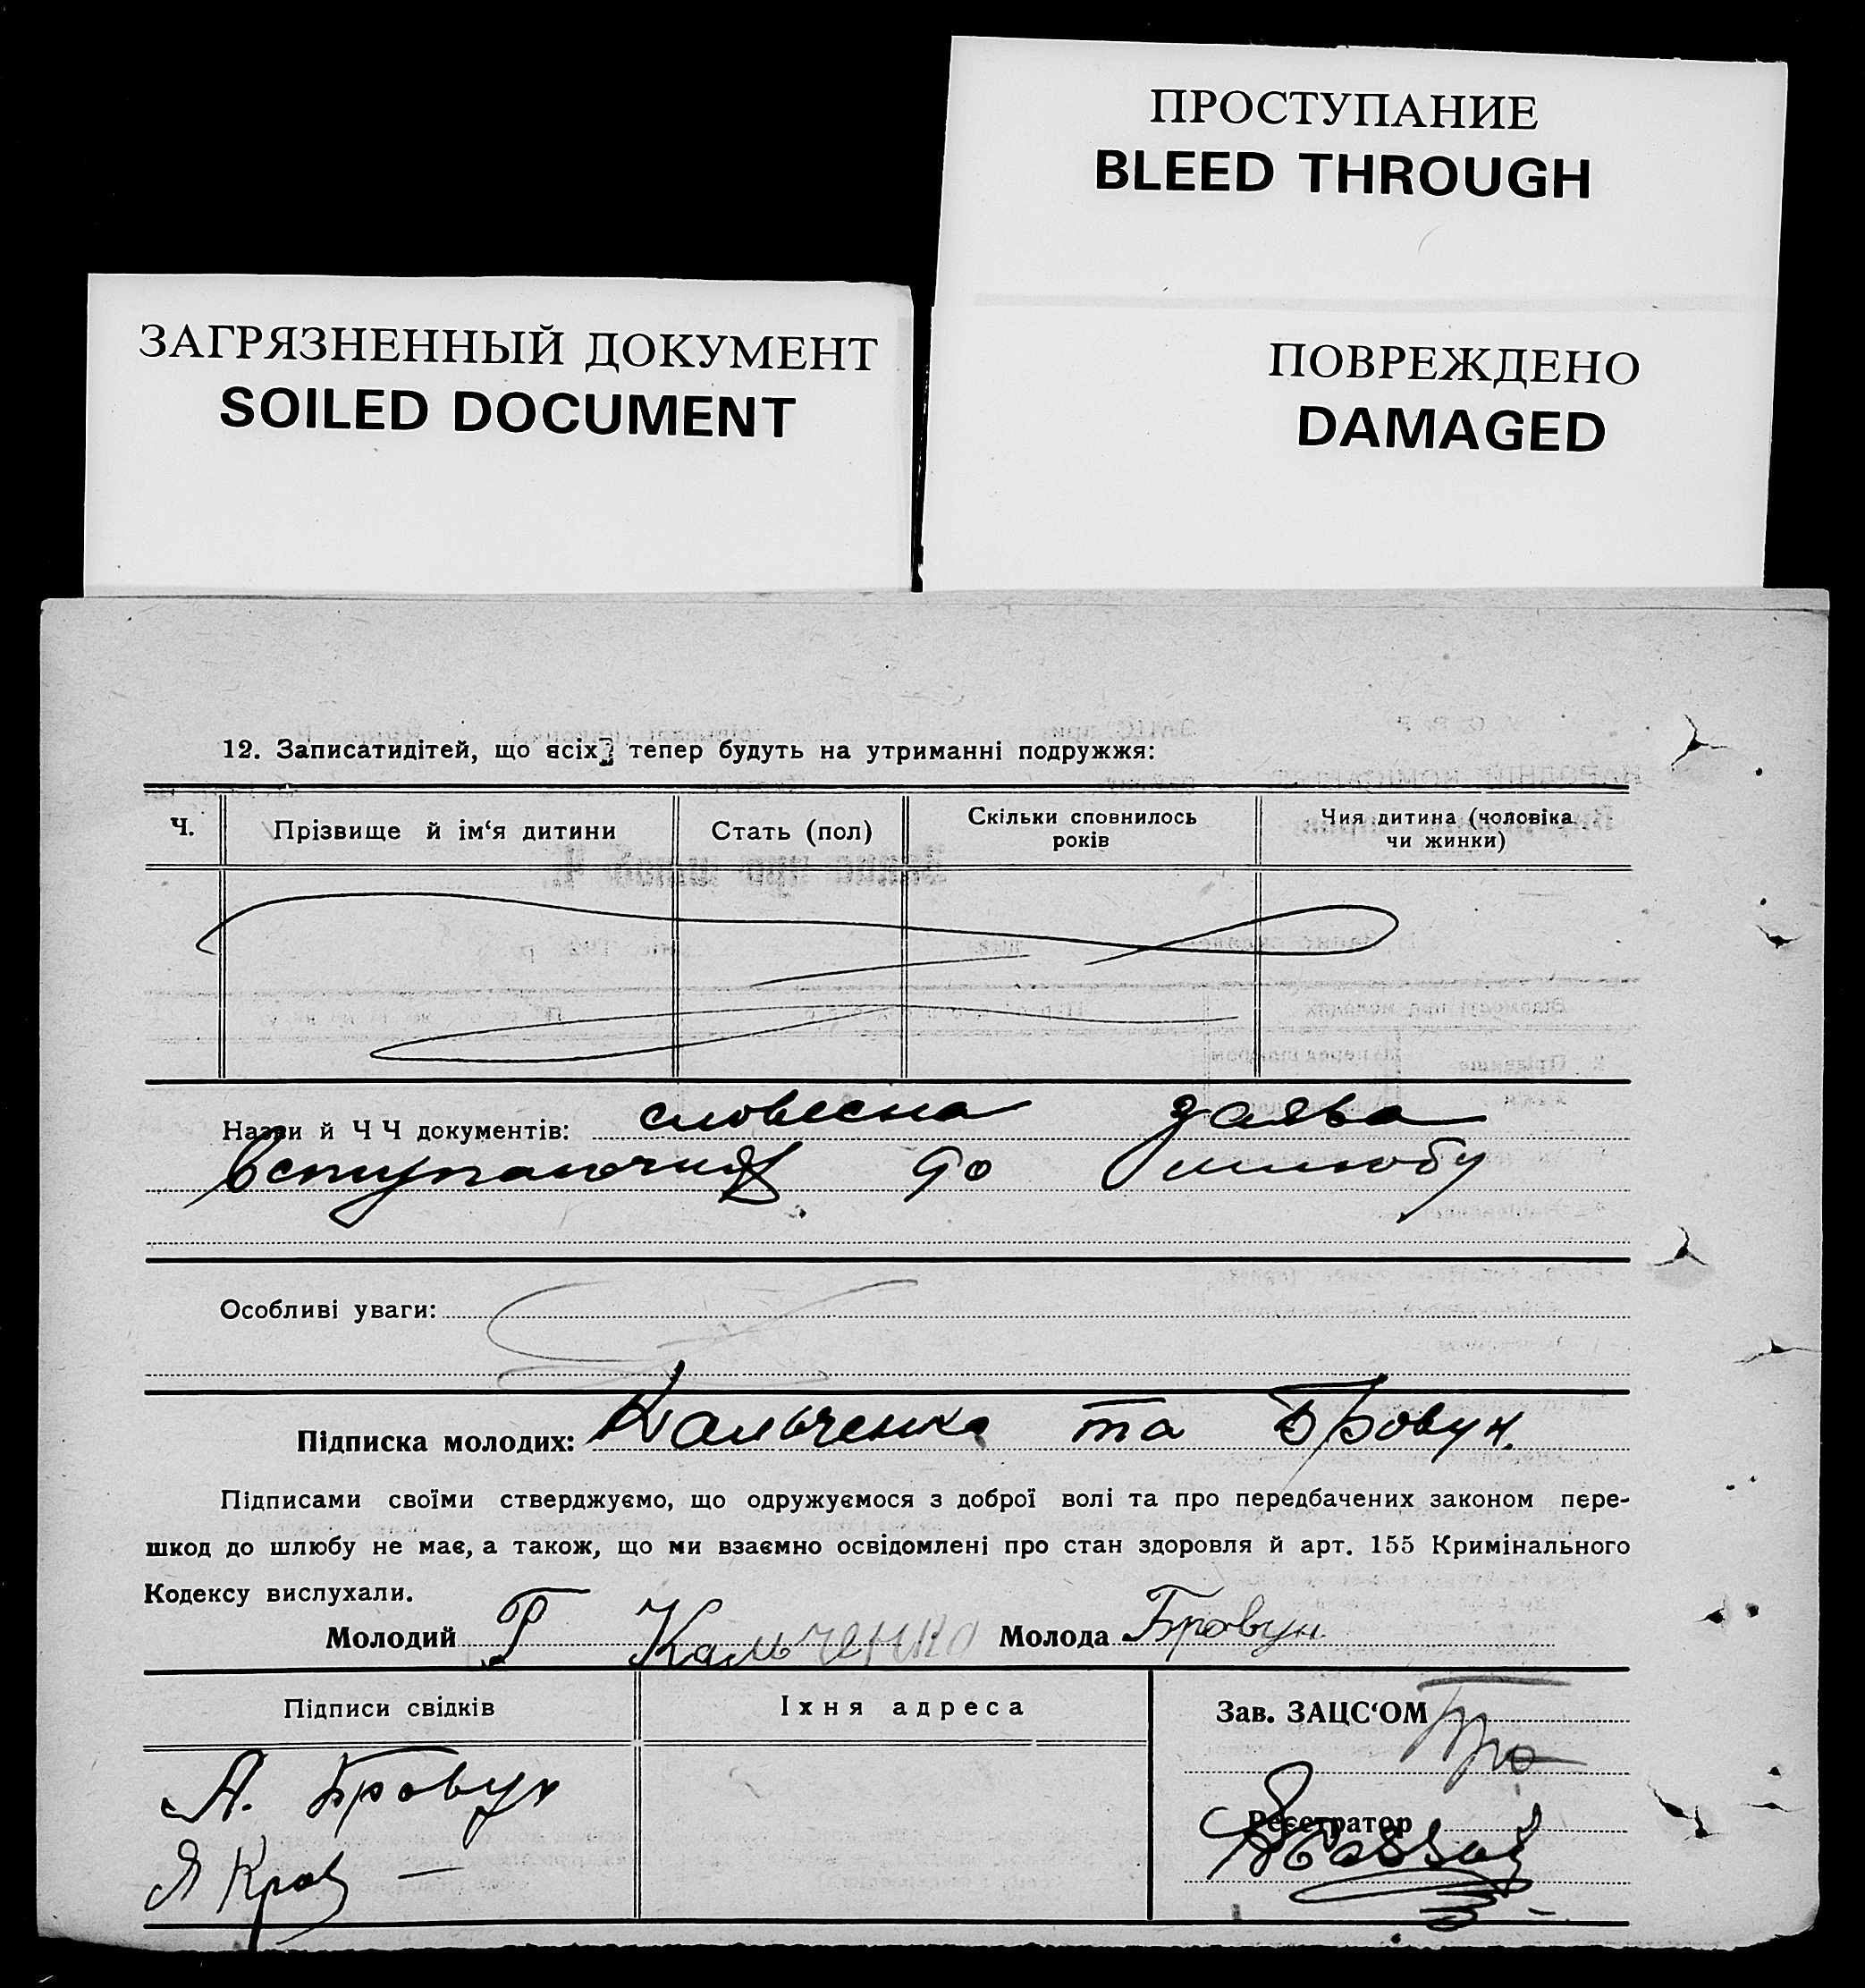 ПРОСТУПАНИЕ
BLEED THROUGH
ПОВРЕЖДЕНО
DAMAGED
ЗАГРЯЗНЕННЫЙ ДОКУМЕНТ
SOILED DOCUMENT
12. Записатидітей, що всіх тепер будуть на утриманні подружжя:
Ч. Прізвище й ім‘я дитини Стать (пол) Скільки сповнилось років Чия дитина (чоловіка чи жинки)
Назви й Ч Ч документів: словесна заява
вступаючих до шлюбу
Особливі уваги:
Підписка молодих: Кальченка та Бровун.
Підписами своїми стверджуємо, що одружуємося з доброї волі та про передбачених законом пере-
шкод до шлюбу не має, а також, що ми взаємно освідомлені про стан здоровля й арт. 155 Кримінального
Кодексу вислухали.
Молодий Г Кальченко Молода Бровун
Підписи свідків Іхня адреса Зав. ЗАЦС‘ОМ
А. Бровун
Реєстратор
Я Крав